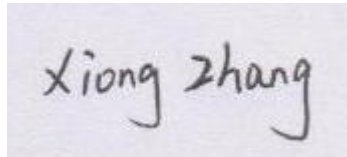 Xiong Zhang